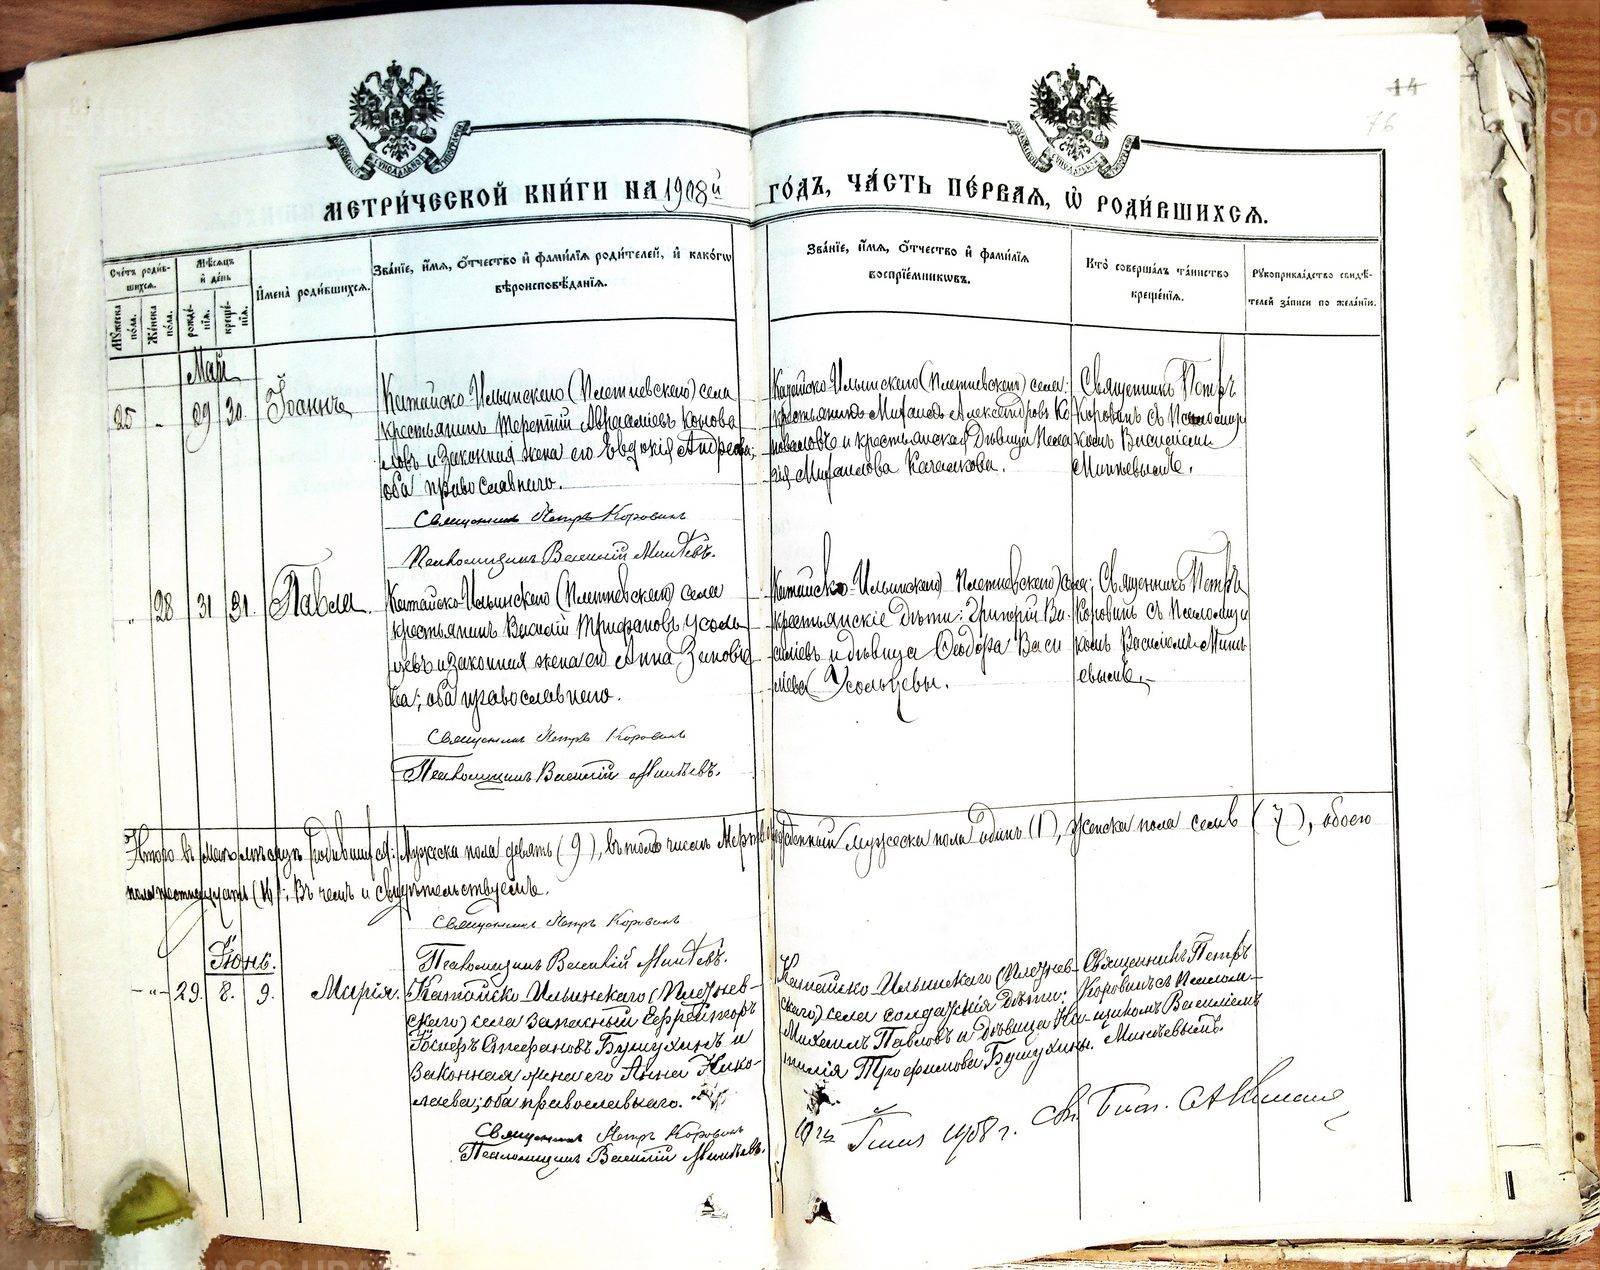 14
76
МЕТРИ́ЧЕСКОЙ КНИ́ГИ НА 1908й ГО́ДЪ, ЧА́СТЬ ПЕ́РВАЯ, Ѡ РОДИ́ВШИХСЯ.
Сче́тъ роди́вшихся.
Му́жеска по́ла.
Же́нска по́ла.
Мѣ́сяцъ и де́нь
рожде́нїя.
креще́нїя.
И҆мена̀ роди́вшихся.
Зва́нїе, и҆́мя, ѻ҆́тчество и҆ фами́лїя роди́телей, и҆ како́гѡ
вѣроисповѣ́данїя.
Зва́нїе, и҆́мя, ѻ҆́тчество и҆ фами́лїя
воспрїе́мникѡвъ.
Кто̀ соверша́лъ та́инство
креще́нїя.
Рꙋкоприкла́дство свидѣ́-
телей за́писи по жела́нїю.
Май
25
29
30.
Іоаннъ
Катайско-Ильинскаго (Плетневскаго) села
крестьянинъ Терентій Авраамiевъ Конова
ловъ и законная жена его Евдокія Андреева;
оба православнаго.
Священникъ Петръ Коровинъ
Псаломщикъ Василій Минѣевъ.
Катайско-Ильинскаго (Плетневскаго) села:
крестьянинъ Михаилъ Александровъ Ко
новаловъ и крестьянская дѣвица Пела
гія Михаилова Качалкова.
Священникъ Петръ
Коровинъ съ Псаломщи
комъ Василіемъ
Минѣевымъ.
28
31
31.
Павла.
Катайско-Ильинскаго (Плетневскаго) села
крестьянинъ Василій Трифановъ Усоль
цевъ и законная жена его Анна Зиновіе
ва; оба православнаго.
Священникъ Петръ Коровинъ
Псаломщикъ Василій Минѣевъ.
Катайско-Ильинскаго Плетневскаго) села;
крестьянскіе дѣти: Григорій Ва
силіевъ и дѣвица Ѳеодора Васи
ліева Усольцевы.
Священникъ Петръ
Коровинъ съ Псаломщи
комъ Василіемъ Минѣ
евымъ.
Итого въ маѣ мѣсяцѣ родившихся: Мужеска пола девять (9), въ томъ числѣ Мертворожденный мужеска пола одинъ (1), женска пола семь (7), обоего
пола шестнадцать (16). Въ чемъ и свидѣтельствуемъ.
Священникъ Петръ Коровинъ
Псаломщикъ Василій Минѣевъ.
Іюнь.
29.
8.
9.
Марія.
Катайско-Ильинскаго (Плетнев-
скаго) села запасный Ефрейторъ
Іосифъ Стефановъ Бушухинъ и
законная жена его Анна Нико-
лаева; оба православнаго.
Священникъ Петръ Коровинъ
Псаломщикъ Василій Минѣевъ.
Катайско-Ильинскаго (Плетнев-
скаго) села солдатскія дѣти:
Михаилъ Павловъ и дѣвица Ка-
питолія Трофимова Бушухины.
Священникъ Петръ
Коровинъ съ Псалом-
щикомъ Василіемъ
Минѣевымъ.
1908 г.